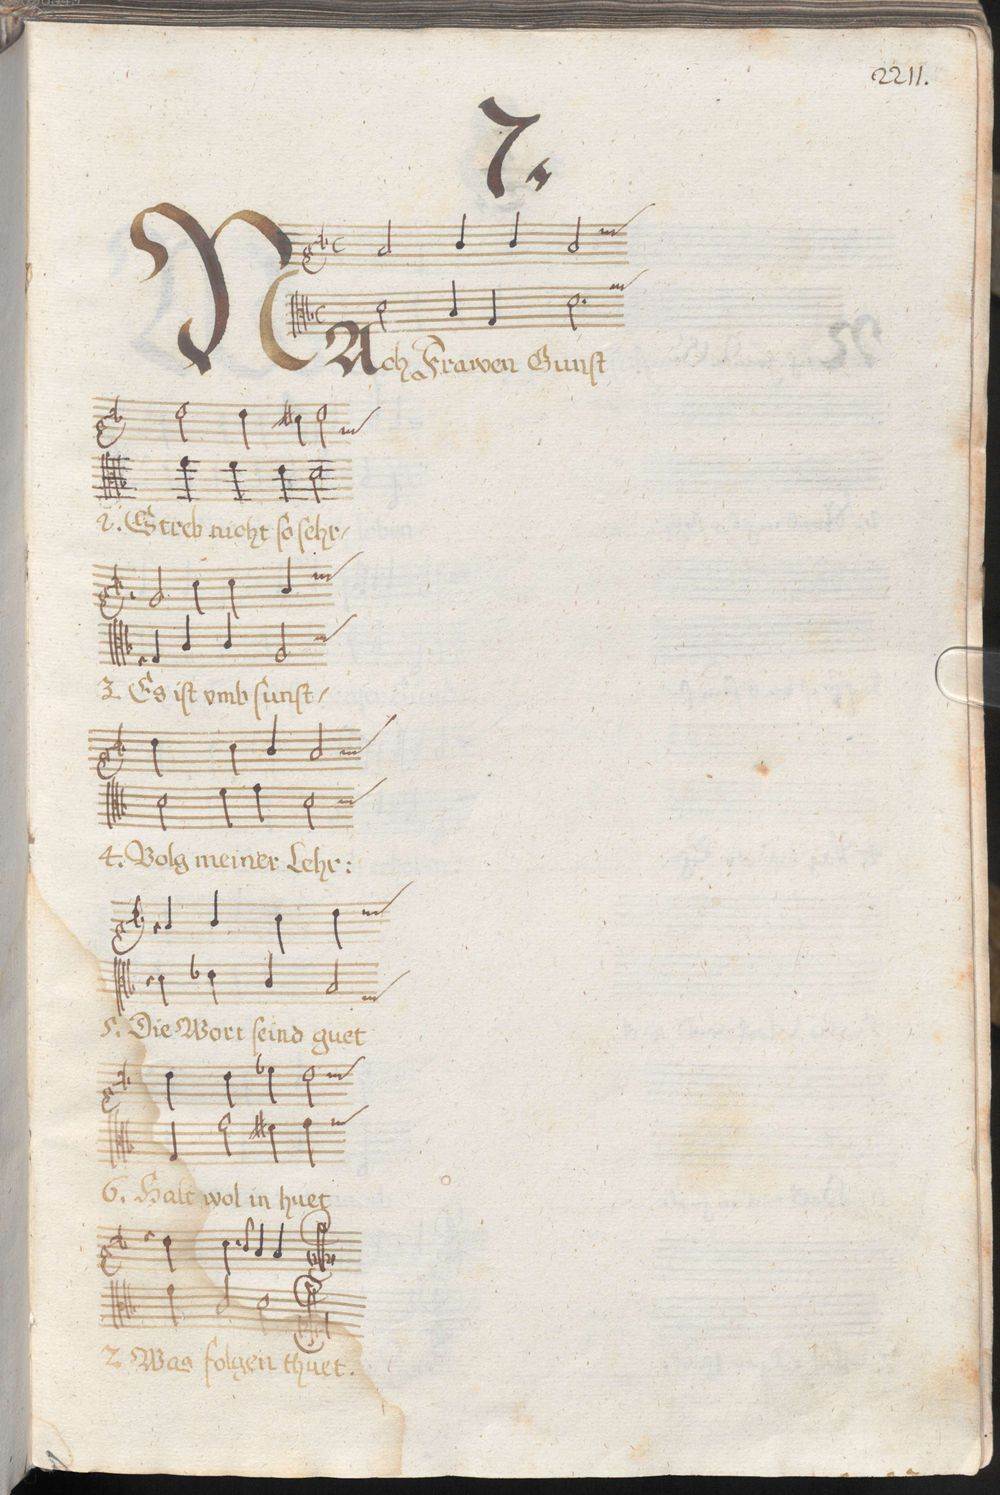 2211.
7.
NAch Frawen Gunst
2. Streb nicht so sehr/
3. Es ist vmb sunst/
4. Volg meiner Lehr:
5. Die Wort seind guet
6. Halt wol in huet
7. Was folgen thuet.